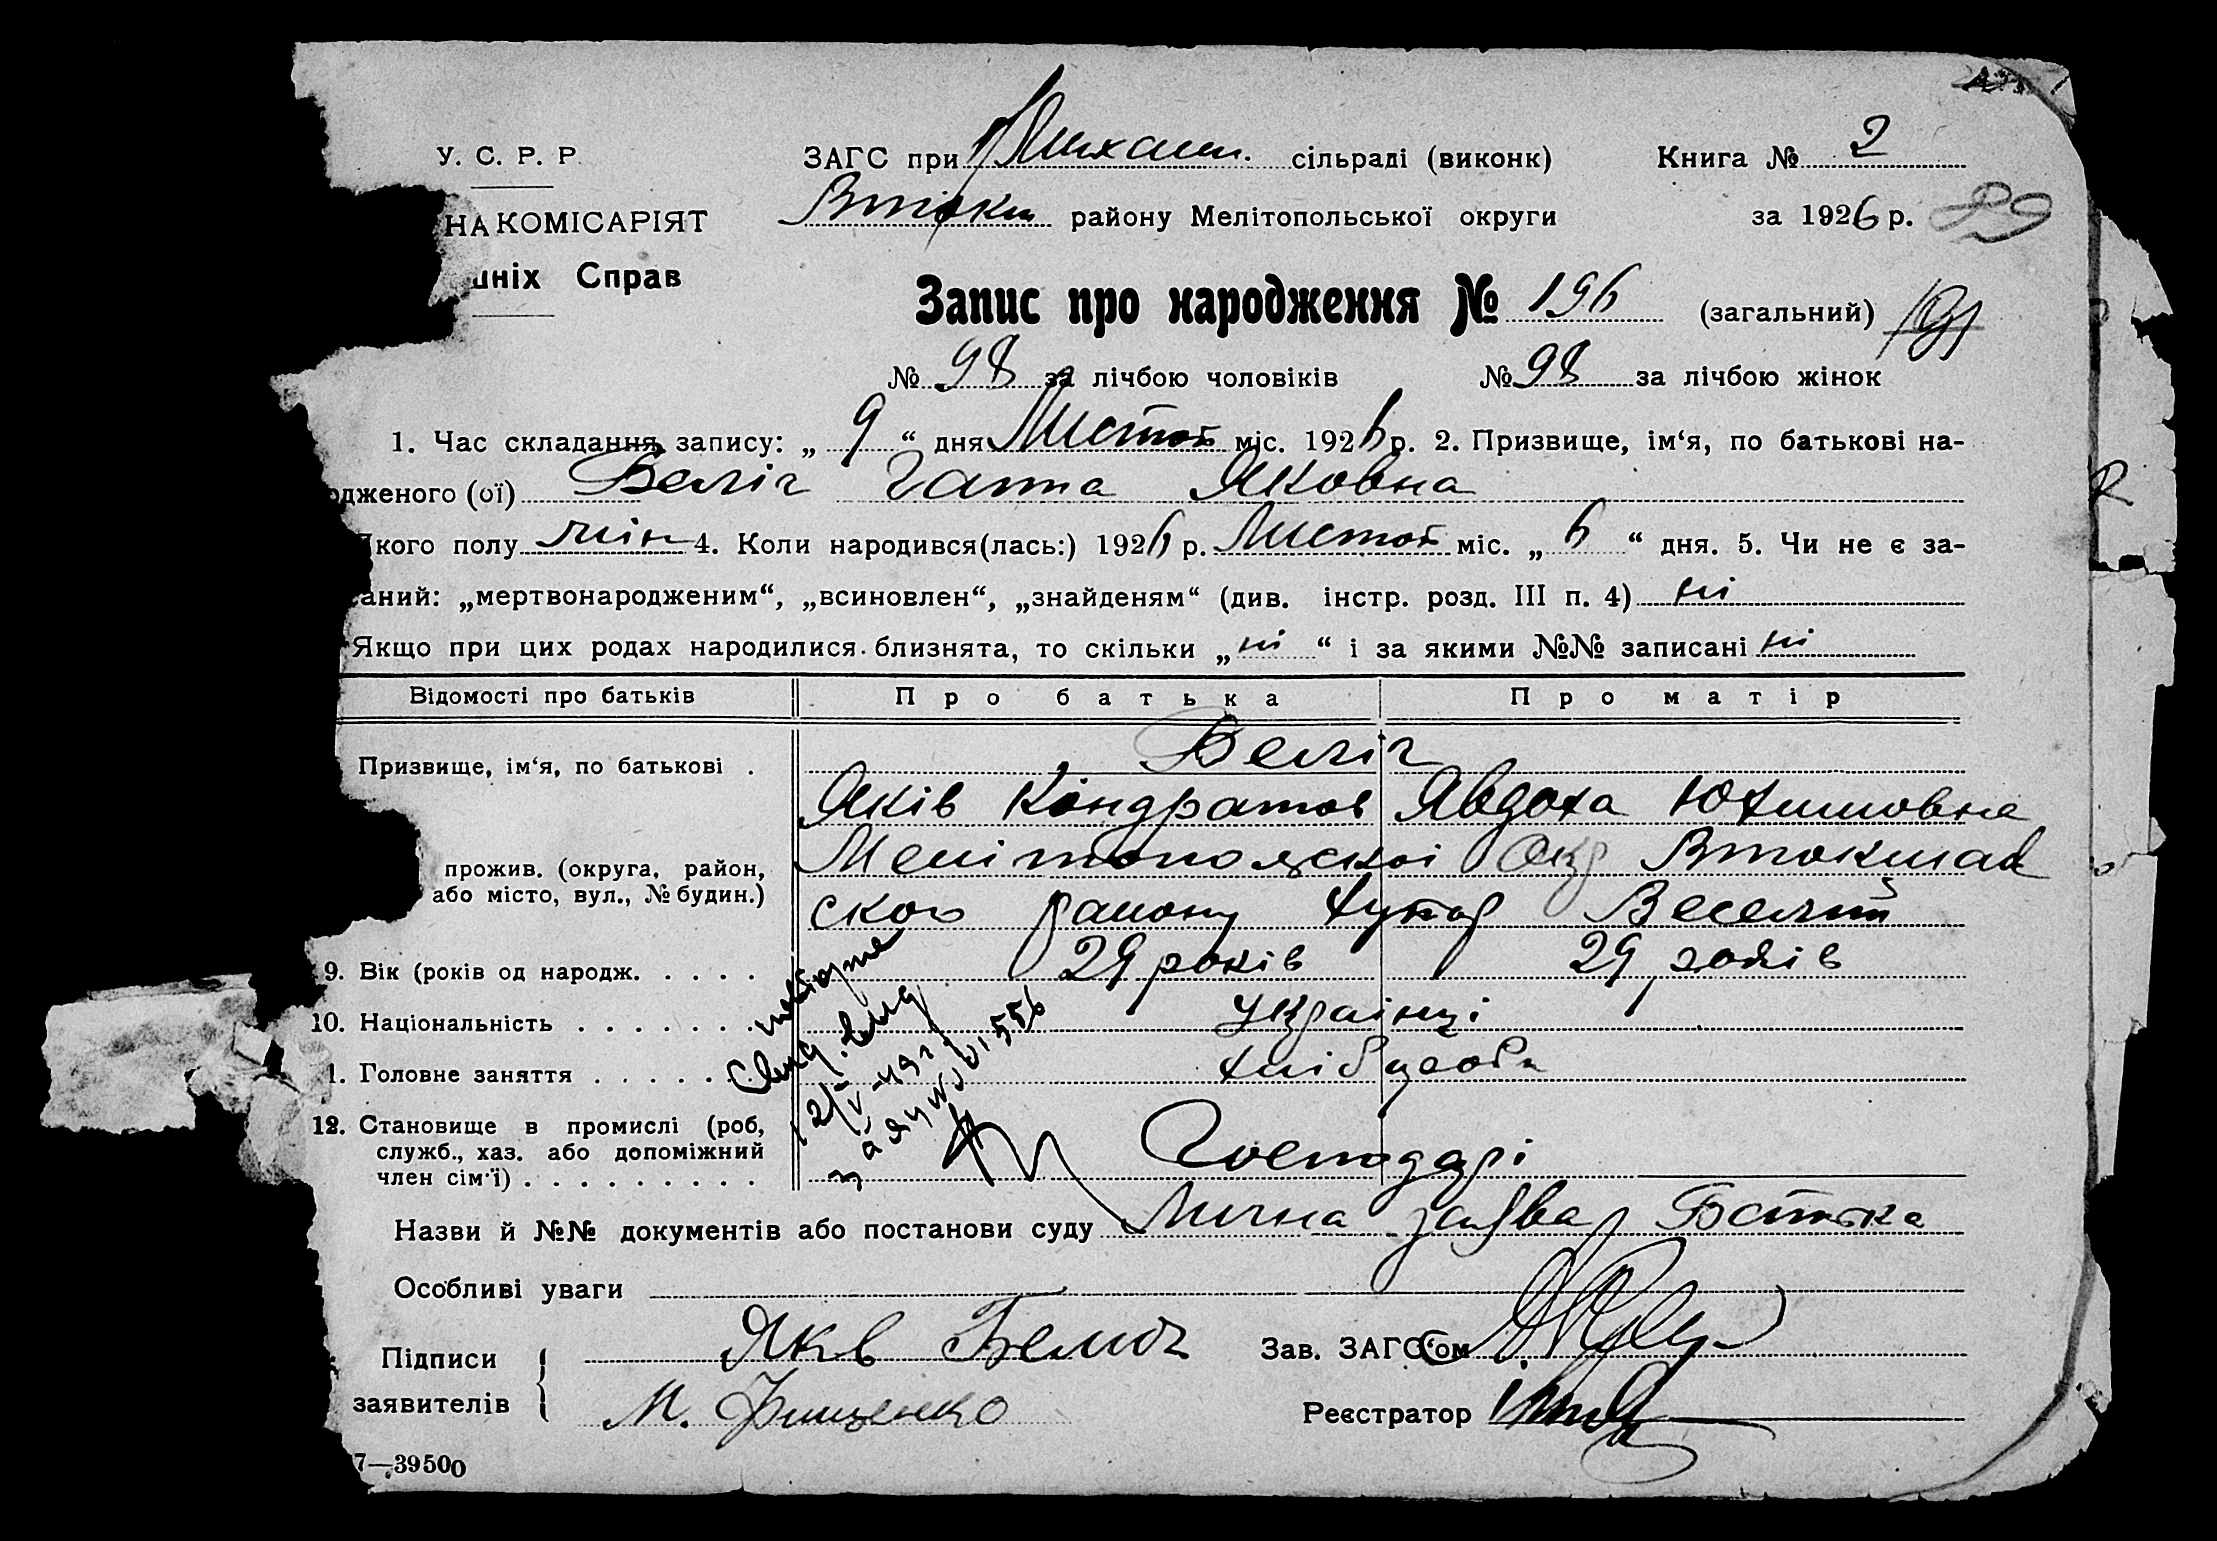 У. С. Р. Р.
ЗАГС при Михайл. сільраді (виконк)
Книга № 2
НАКОМІСАРІЯТ
Втокм району Мелітопольської округи
за 1926 р. 89
шніх Справ
Запис про народження № 196 (загальний) 191
№ 98 за лічбою чоловіків № 98 за лічбою жінок
1. Час складання запису: „ 9 “ дня Листоп міс. 1926 р. 2. Призвище, ім‘я, по батькові на-
одженого (ої) Беліч Ганна Яковна
Якого полу жін 4. Коли народився(лась:) 1926 р. Листоп міс. „ 6 “ дня. 5. Чи не є за-
аний: „мертвонародженим“, „всиновлен“, „знайденям“ (див. інстр. розд. III п. 4) ні
Якщо при цих родах народилися близнята, то скільки „ ні “ і за якими №№ записані ні
Відомості про батьків Про батька Про матір
Призвище, ім‘я, по батькові . Беліч
Яків Кондратов Явдоха Юхимовна
прожив. (округа, район, Мелітопольскої Окр Втокмак
або місто, вул., № будин.) ского району хутор Веселий
9. Вік (років од народж. . . . . 29 років 29 років
10. Національність . . . . . . . Українці
1. Головне заняття . . . . . . хлібороби
12. Становище в промислі (роб,
служб., хаз. або допоміжний Господарі
член сім‘ї) . . . . . . . . .
повторне
12/V-49 г.
Назви й №№ документів або постанови суду Лична заява Батька
Особливі уваги
Підписи Яків Белич Зав. ЗАГС‘ом
заявителів М. Фищенко Реєстратор
7—39500